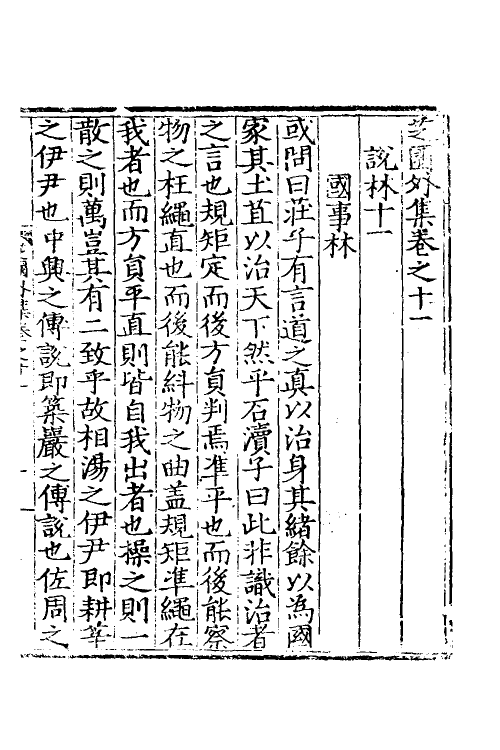 芝園外集卷之十一
說林十一
國事林
或問曰莊子有言道之真以治身其緒餘以為國
家其土苴以治天下然乎石瀆子曰此非識治者
之言也規矩定而後方員判焉準平也而後能察
物之枉繩直也而後能糾物之曲盖規矩準繩在
我者也而方員平直則皆自我出者也操之則一
散之則萬豈其有二致乎故相湯之伊尹即耕莘
之伊尹也中興之傳說即築巖之傳說也佐周之